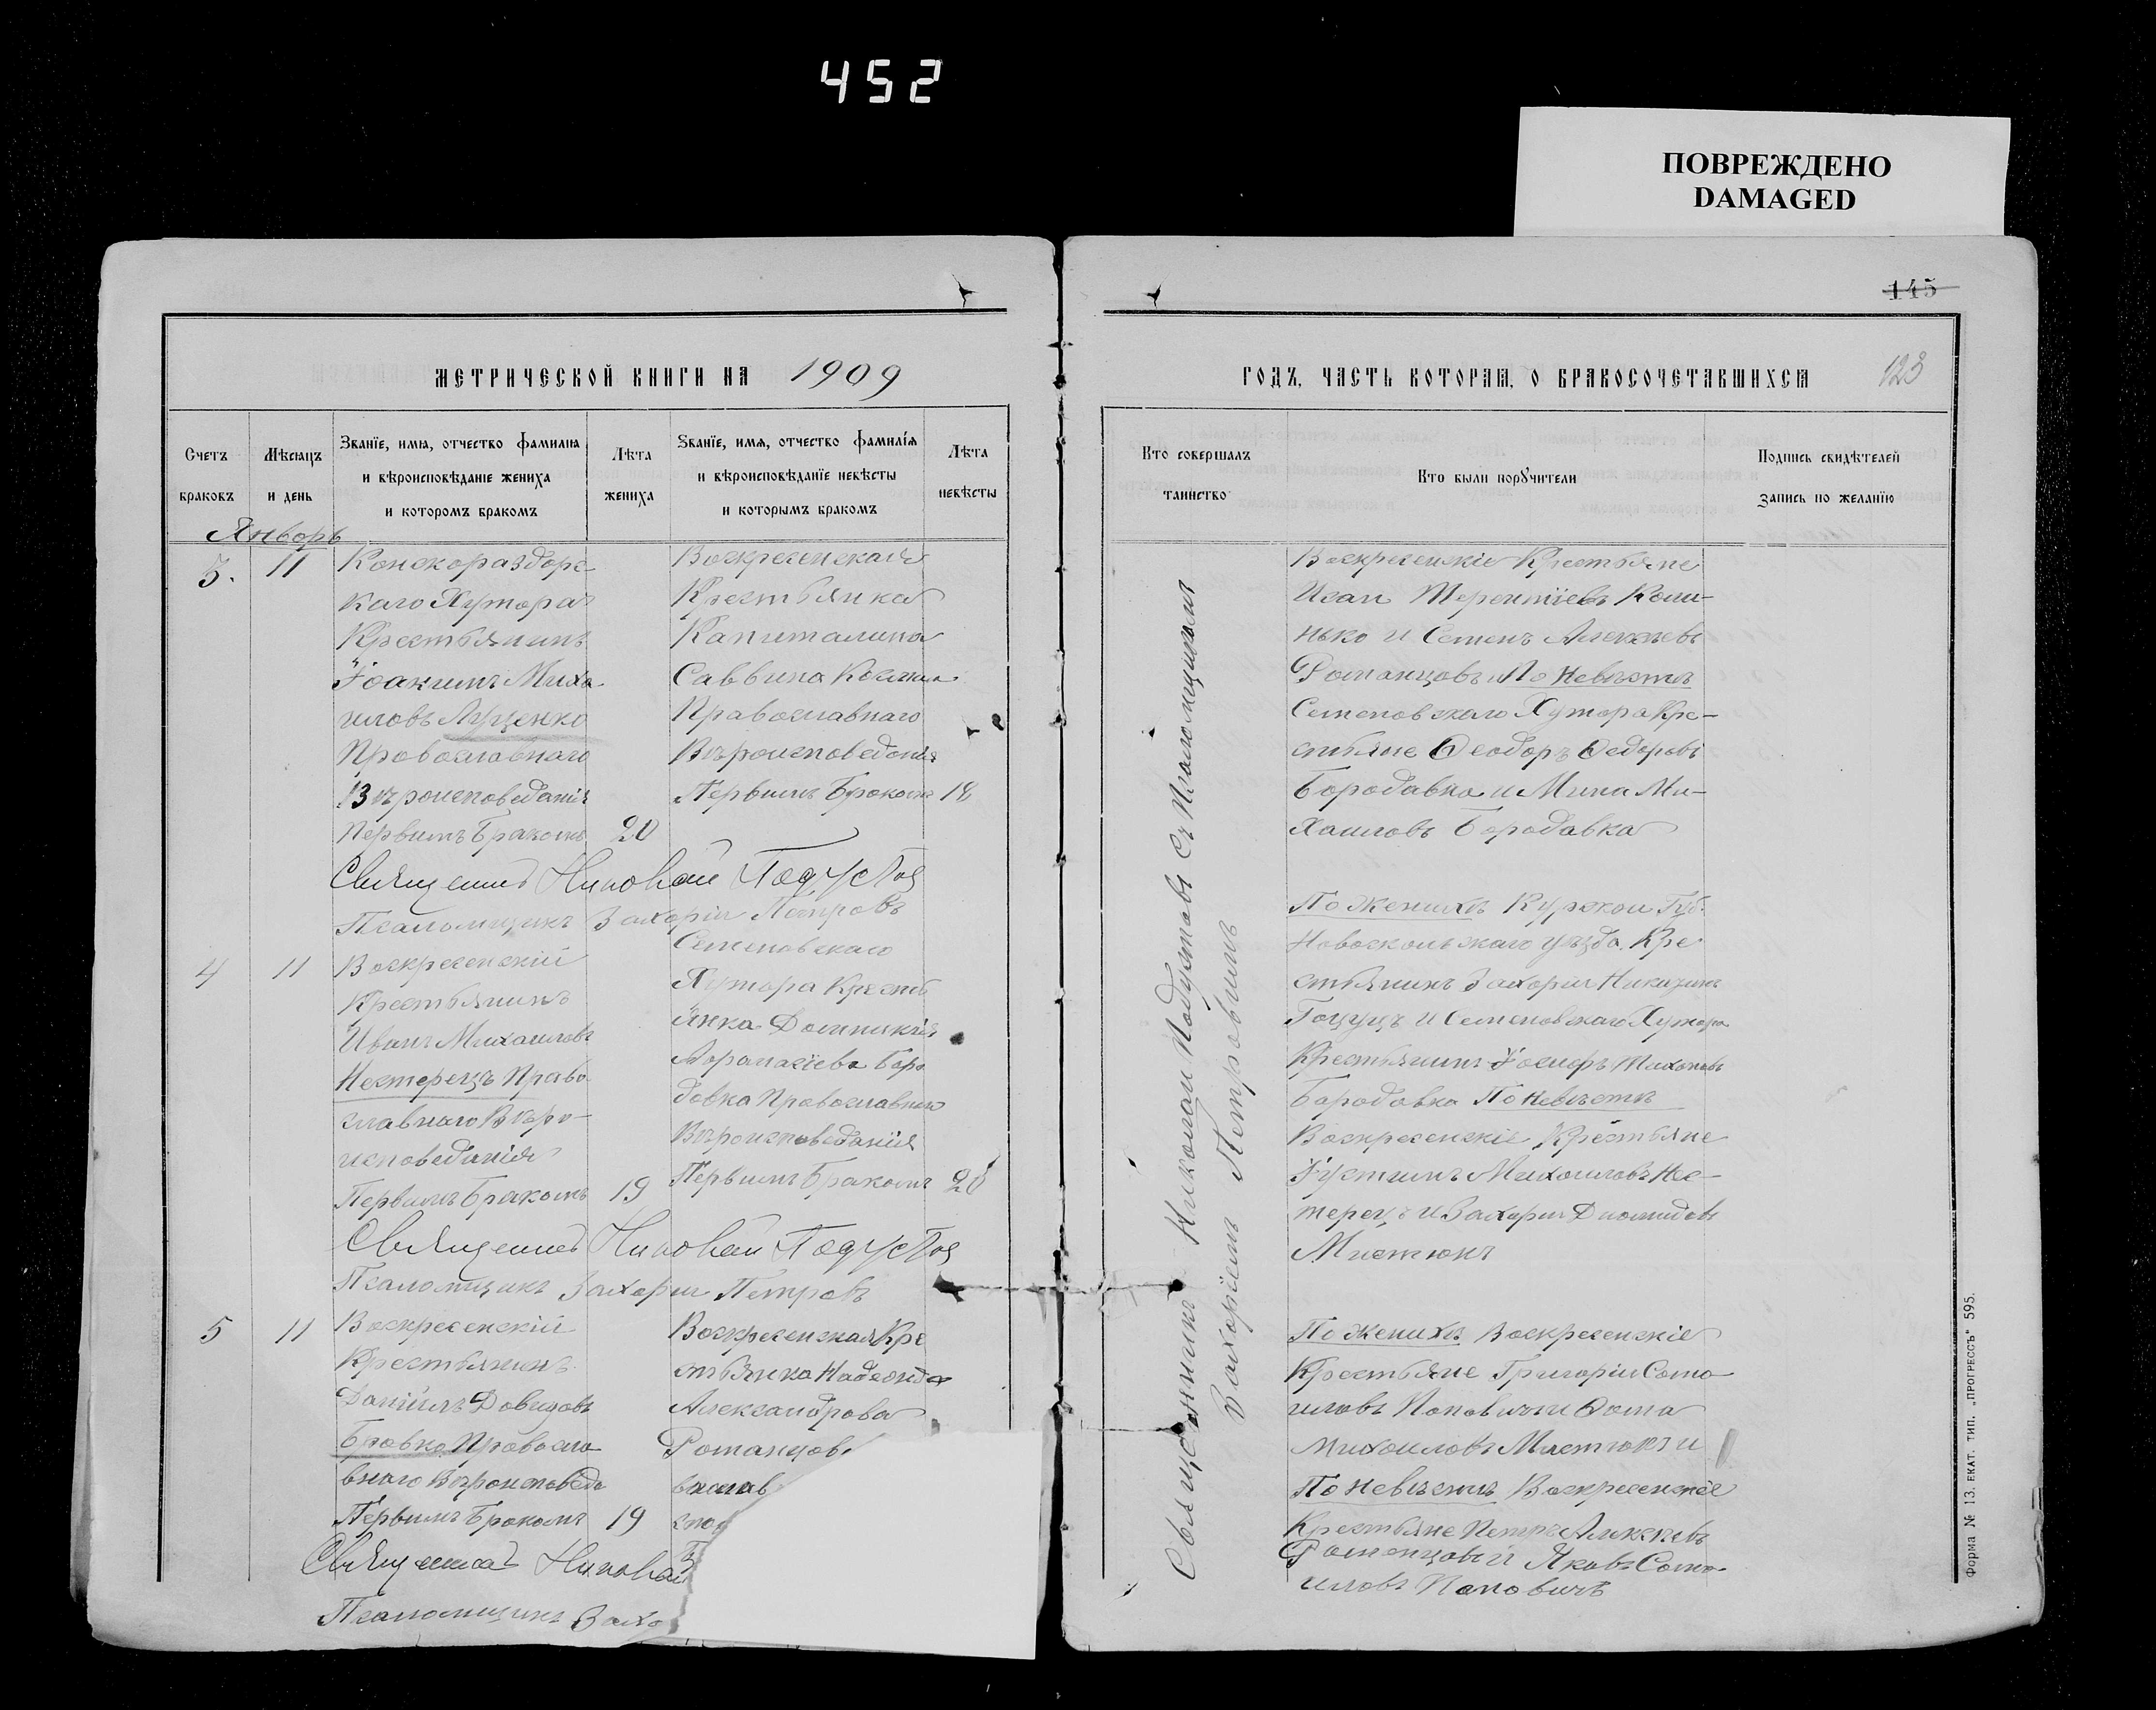 452
ПОВРЕЖДЕНО
DAMAGED
145
МЕТРИЧЕСКОЙ КНИГИ НА 1909
ГОДЪ, ЧАСТЬ ВТОРАЯ, О БРАКОСОЧЕТАВШИХСЯ
123
Счетъ браковъ
Мѣсяцъ и день
Званіе, имя, отчество фамилия
и вѣроисповѣданіе жениха
и которомъ бракомъ
Лѣта жениха
Званіе, имя, отчество фамилія
и вѣроисповѣданіе невѣсты
и которымъ бракомъ
Лѣта невѣсты
Кто совершалъ таинство
Кто были поручители
Подпись свидѣтелей
запись по желанію
Январь
3. 11
Конскораздорс
каго Хутора
Крестьянинъ
Іоакимъ Миха
иловъ Луценко
Православнаго
Вѣроисповеданія
Первымъ Бракомъ 20
Воскресенская
Крестьянка
Капиталина
Саввина
Православнаго
Вѣроисповеданія
Первымъ Бракомъ 18
Священникъ Николай Подустов
Псаломщикъ Захарій Петровъ
4 11
Воскресенскій
Крестьянинъ
Иванъ Михаиловъ
Нестерецъ Право
славнаго Вѣро-
исповеданія
Первымъ Бракомъ 19
Семеновскаго
Хутора Кресть
янка Домникія
Афанасіева Боро
давка Православнаго
Вѣроисповеданія
Первымъ Бракомъ 20
Священникъ Николай Подустов
Псаломщикъ Захарій Петровъ
5 11
Воскресенскій
Крестьянинъ
Даніилъ Давидовъ
Бровко Правосла
внаго Вѣроисповеда
Первымъ Бракомъ 19
Воскресенская Кре
стьянка Надежда
Александрова
Романцов
Священникъ Никола
Псаломщикъ Заха
Священникъ Николай Подустовъ съ Псаломщикомъ
Захаріемъ Петровымъ
Воскресенскіе Крестьяне
Исаи Терентіевъ Коли-
нько и Семенъ Алексѣевъ
Романцовъ По Невѣстѣ
Семеновскаго Хутора Кре-
стьяне Ѳеодоръ Ѳедоровъ
Бородавка и Мина Ми-
хаиловъ Бородавка
По Женихѣ Курской Губ.
Новоскольскаго уѣзда Кре
стьянинъ Захарій
и Семеновскаго Хутора
Крестьянинъ Іосифъ
Бородавка По Невѣстѣ
Воскресенскіе Крестьяне
Іустинъ Михаиловъ Нес-
терецъ и Захарій Диомидовъ
Мистюкъ
По Женихѣ Воскресенскіе
Крестьяне Григорій Само
иловъ Поповичъ и Ѳома
Михаиловъ Мистюкъ и
По Невѣстѣ Воскресенскіе
Крестьяне Петръ Алексѣевъ
Романцовъ и Яковъ Само
иловъ Поповичъ
Форма № 13. ЕКАТ. ТИП. „ПРОГРЕССЪ" 595.